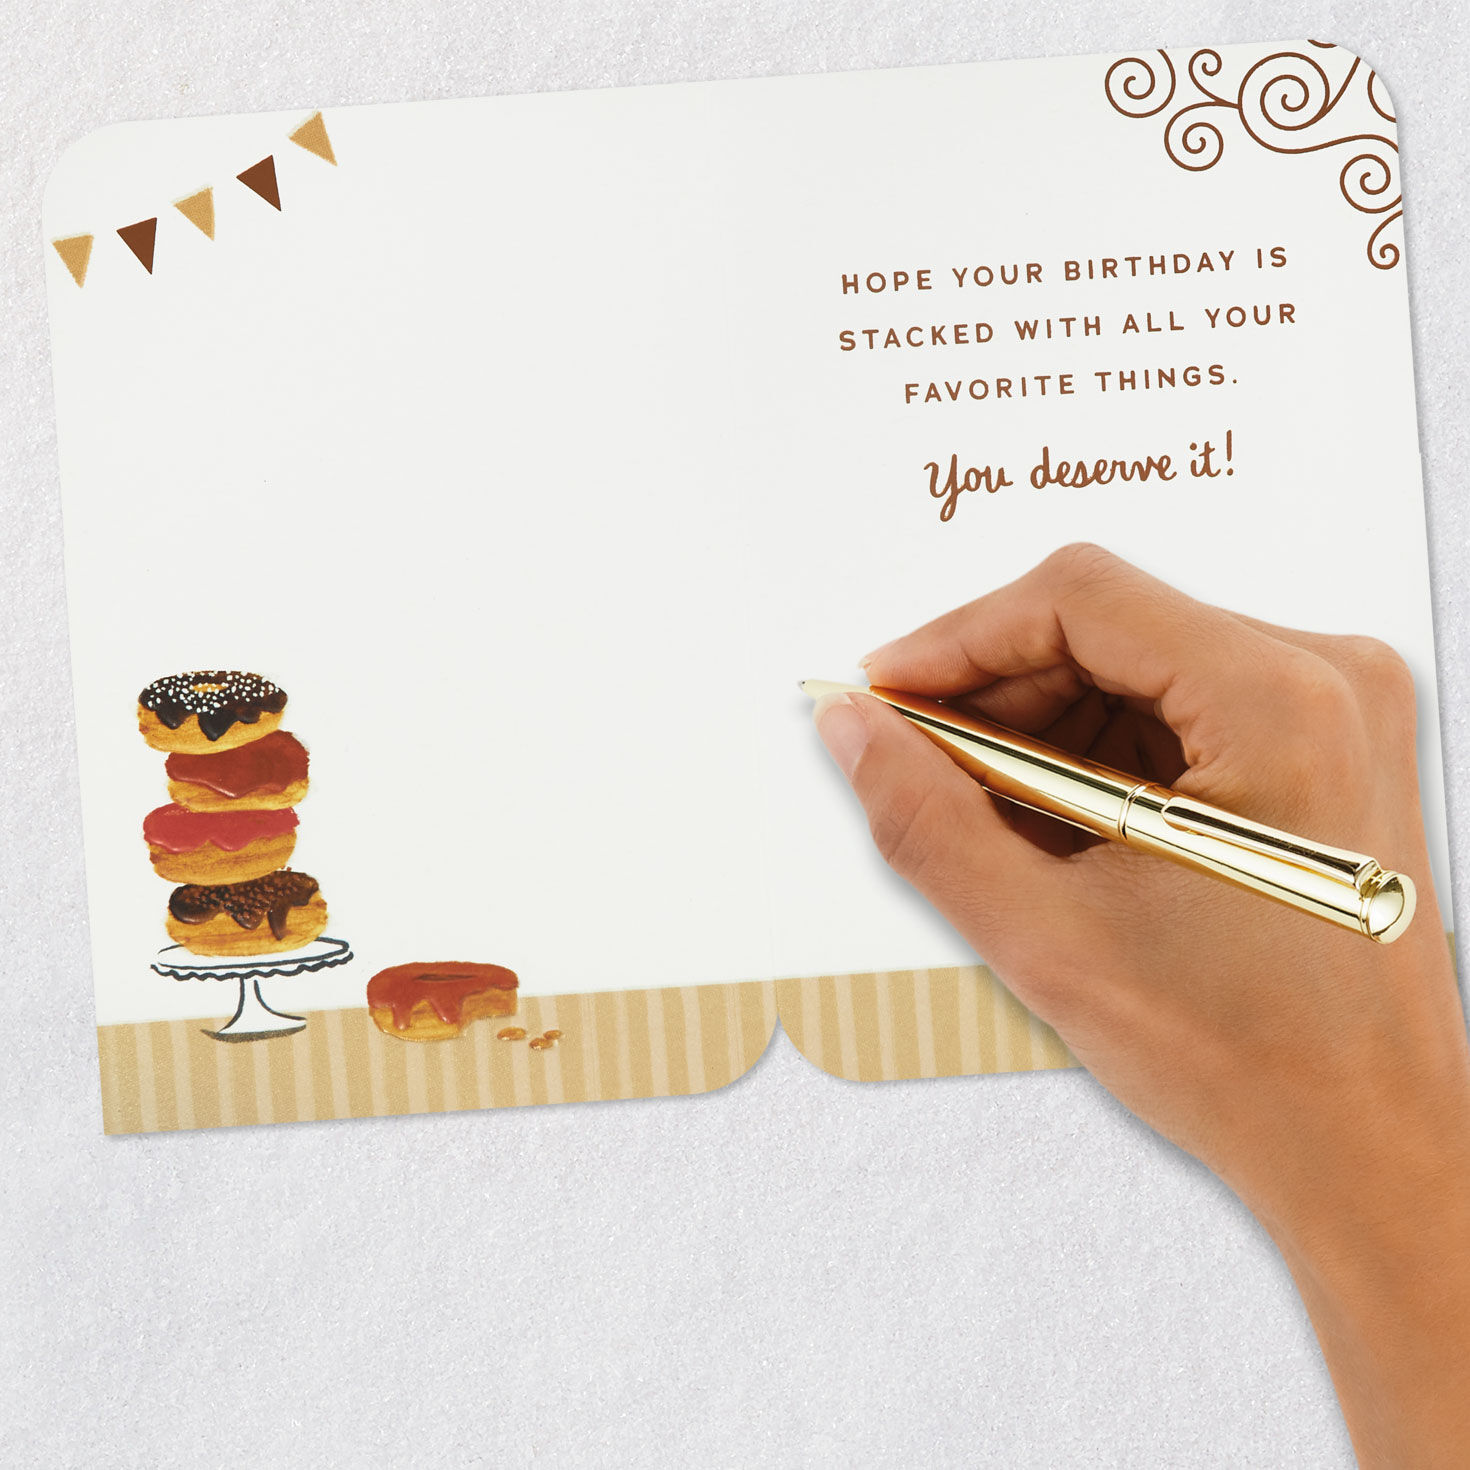 HOPE YOUR BIRTHDAY IS
STACKED WITH ALL YOUR
FAVORITE THINGS.
You deserve it!